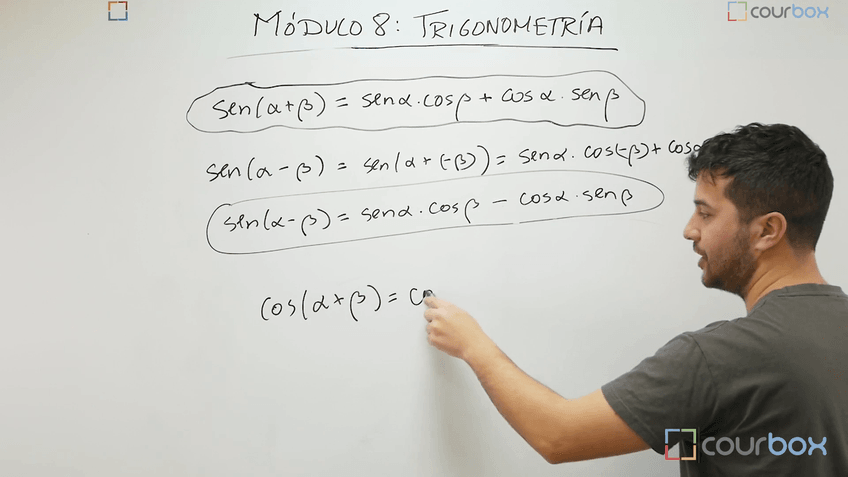 courbox
MÓDULO 8: TRIGONOMETRÍA
sen(α+β) = senα.cosβ + cosα.senβ
sen(α-β) = sen(α+(-β)) = senα.cos(-β)+cosα
sen(α-β) = senα.cosβ - cosα.senβ
cos(α+β) = co
courbox